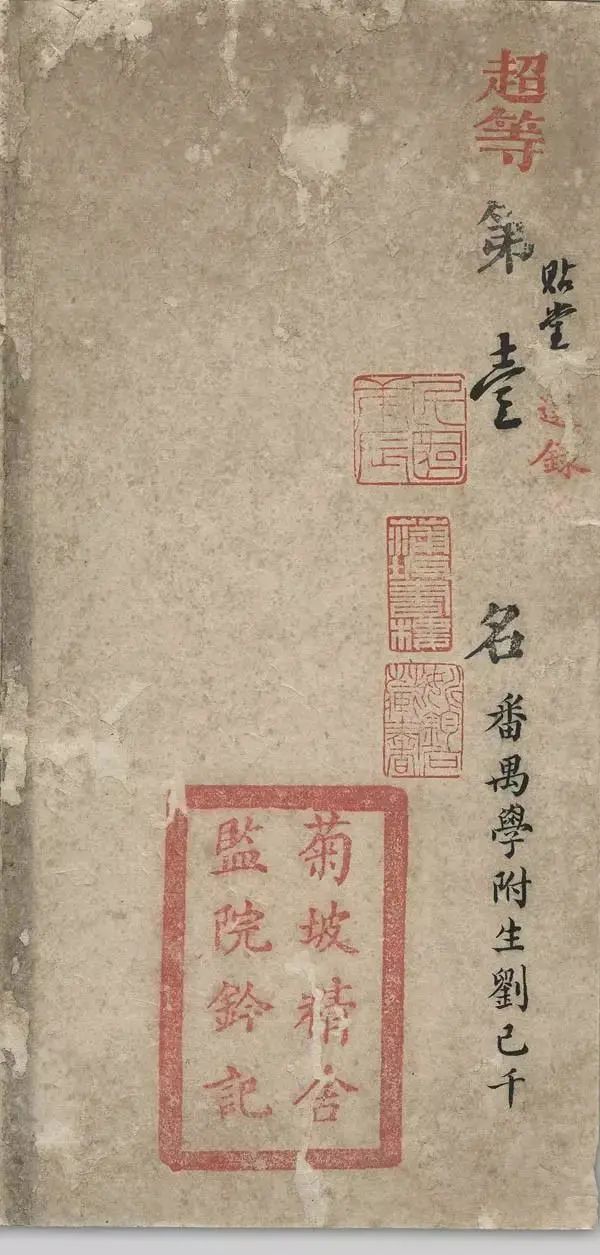 超等
第壹名
番禺學附生劉已千
貼堂
選錄
菊坡精舍
監院鈐記